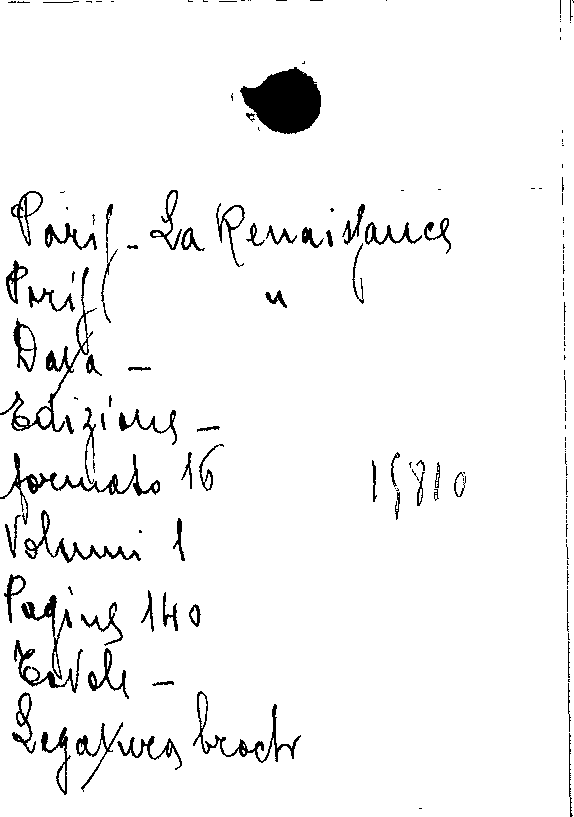 Paris - La Renaissance
Paris "
Data -
Edizione -
formato 16
15810
Volumi 1
Pagine 140
Tavole -
Legatura broch